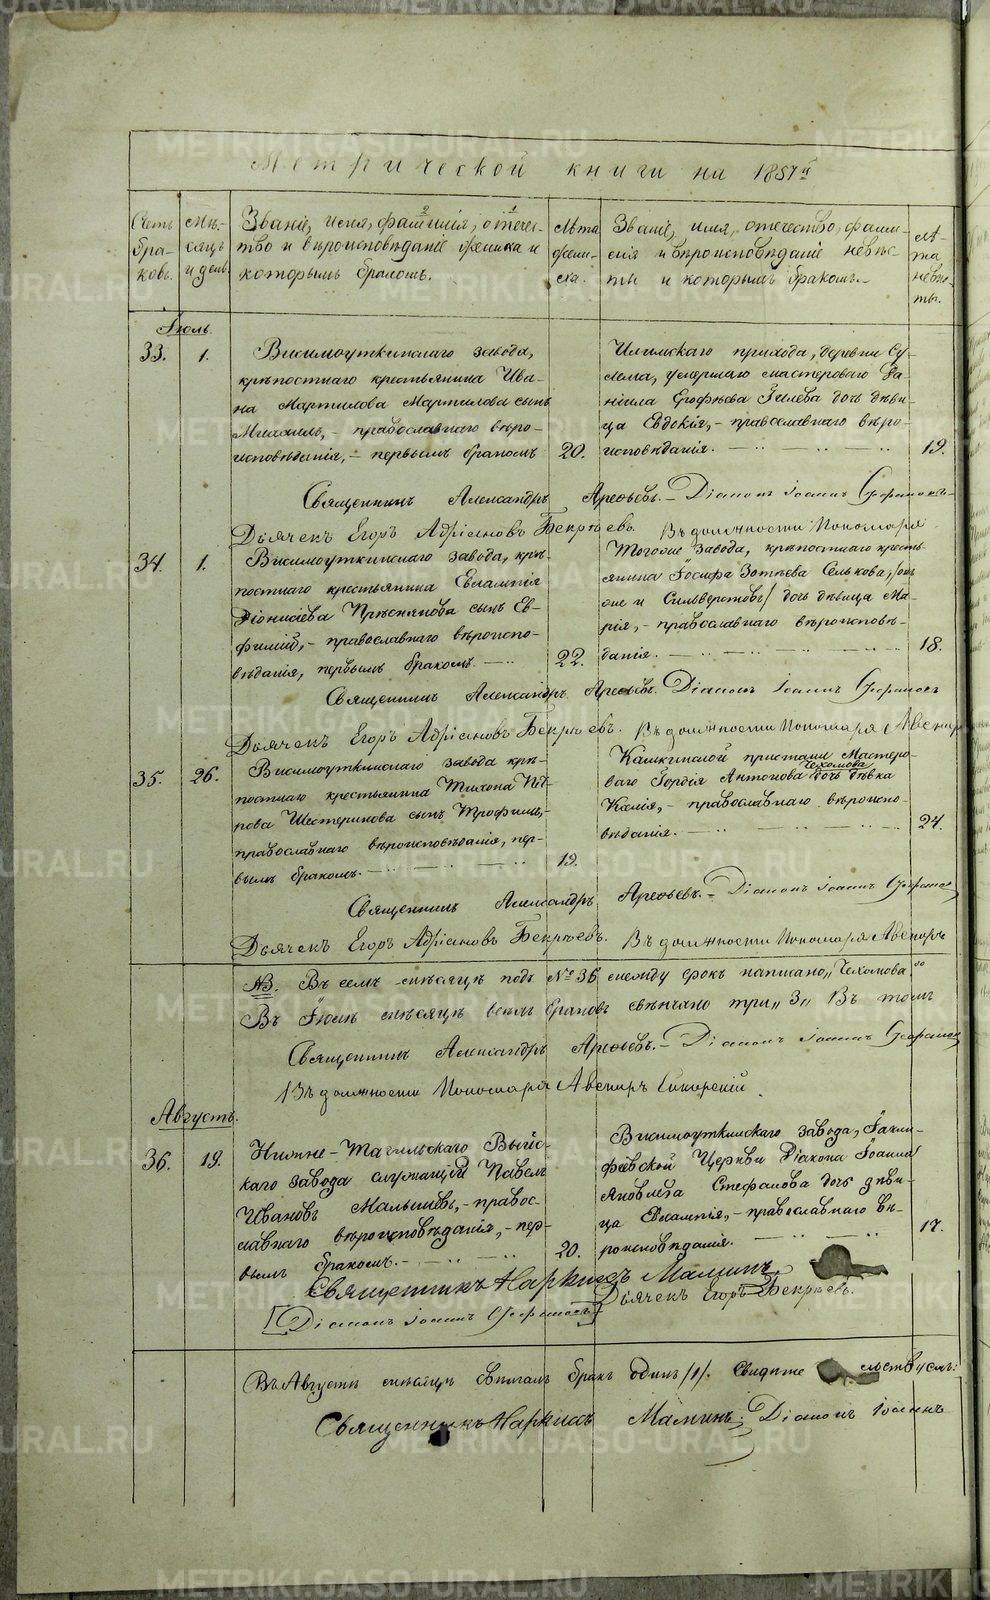 Метрической книги на 1857й
Счетъ браковъ.
Мѣсяцъ и день.
Званіе, имя, фамилія, отечество и вѣроисповѣданіе жениха и которымъ бракомъ.
Лѣта жениха.
Званіе, имя, отечество, фамилія и вѣроисповѣданіе невѣсты и которымъ бракомъ.
Лѣта невѣсты.
Іюль.
33. 1.
Висимоуткинскаго завода,
крѣпостнаго крестьянина Ива-
на Мартилова Мартилова сынъ
Михаилъ, - православнаго вѣро-
исповѣданія, - первымъ бракомъ
20.
Илимскаго прихода, деревни Су-
лема, умершаго мастероваго Да-
ніила Ерофѣева Гилева дочь дѣви-
ца Евдокія, - православнаго вѣро-
исповѣданія.
19.
Священникъ Александръ Арефьевъ. - Діаконъ Іоаннъ Стефановъ
Дьячекъ Егоръ Адріановъ Бекрѣевъ. Въ должности Пономаря
34. 1.
Висимоуткинскаго завода, крѣ-
постнаго крестьянина Евлампія
Діонисіева Прѣснякова сынъ Ев-
фимій, - православнаго вѣроиспо-
вѣданія, первымъ бракомъ
22.
Тогоже завода, крѣпостнаго кресть-
янина Іосифа Зотѣева Селькова, /онъ
же и Сильверстовъ/ дочь дѣвица Ма-
рія, - православнаго вѣроисповѣ-
данія.
18.
Священникъ Александръ Арефьевъ. Діаконъ Іоаннъ Стефановъ
Дьячекъ Егоръ Адріановъ Бекрѣевъ. Въ должности Пономаря Авениръ
35. 26.
Висимоуткинскаго завода крѣ-
постнаго крестьянина Тихона Пет-
рова Шестерикова сынъ Трофимъ, -
православнаго вѣроисповѣданія, пер-
вымъ бракомъ.
19.
Камкинской пристани Мастеро-
ваго Гордія Антонова Чехомова дочь дѣвка
Калія, - православнаго вѣроиспо-
вѣданія.
24.
Священникъ Александръ Арефьевъ. - Діаконъ Іоаннъ Стефановъ
Дьячекъ Егоръ Адріановъ Бекрѣевъ. Въ должности Пономаря Авениръ
NB. Въ семъ мѣсяцѣ подъ № 35 между срокъ написано „Чехомова“
Въ Іюлѣ мѣсяцѣ всѣхъ браковъ свѣнчано три „3„ Въ томъ
Священникъ Александръ Арефьевъ. - Діаконъ Іоаннъ Стефановъ
Въ должности Пономаря Авениръ Сикорскій.
Августъ.
36. 19.
Нижне-Тагильскаго Выйс-
каго завода служащій Павелъ
Ивановъ Малышевъ, - право-
славнаго вѣроисповѣданія, - пер-
вымъ бракомъ.
20.
Висимоуткинскаго завода,
Церкви Діакона Іоанна
Яковлева Стефанова дочь дѣви-
ца Евлампія, - православнаго вѣ-
роисповѣданія.
17.
Священникъ Наркисъ Маминъ
Дьячекъ Егоръ Бекрѣевъ.
[Діаконъ Іоаннъ Стефановъ]
Въ Августѣ мѣсяцѣ бракъ одинъ /1/. Свидѣте льствуемъ:
Священникъ Наркисъ Маминъ; Діаконъ Іоаннъ
METRIKI.GASO-URAL.RU